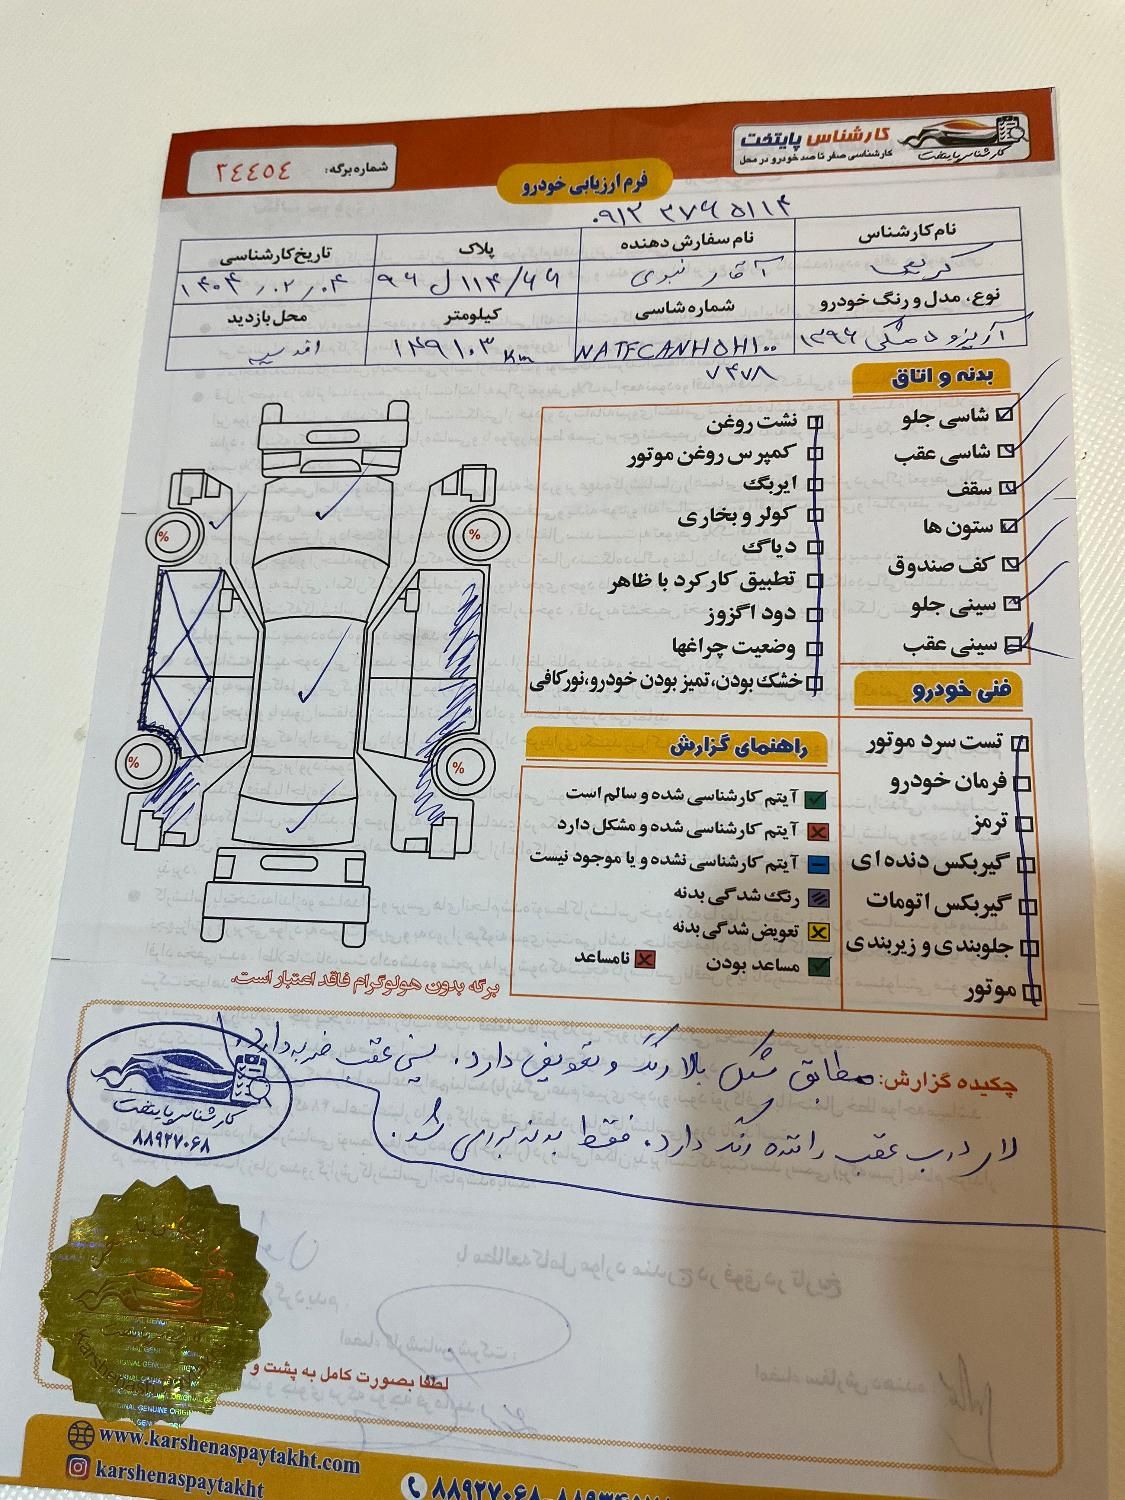 کارشناس پایتخت
کارشناسی صفر تا صد خودرو در محل
کارشناس پایتخت
شماره برگه: ۳۴۴۵۴
فرم ارزیابی خودرو
۰۹۱۲ ۳۷۶۵۱۱۴
نام کارشناس
نام سفارش دهنده
پلاک
تاریخ کارشناسی
کریمی
آقای نبوی
۹۶ ل ۱۱۴/۶۶
۱۴۰۴/۰۲/۰۴
نوع، مدل و رنگ خودرو
شماره شاسی
کیلومتر
محل بازدید
آریزو ۵ مشکی ۱۳۹۶
NATFCANH5H1۰۰
۷۴۷۸
۱۴۹۱۰۳ Km
اقدسیه
بدنه و اتاق
شاسی جلو
شاسی عقب
سقف
ستون ها
کف صندوق
سینی جلو
سینی عقب
نشت روغن
کمپرس روغن موتور
ایربگ
کولر و بخاری
دیاگ
تطبیق کارکرد با ظاهر
دود اگزوز
وضعیت چراغها
خشک بودن، تمیز بودن خودرو، نورکافی
فنی خودرو
تست سرد موتور
فرمان خودرو
ترمز
گیربکس دنده ای
گیربکس اتومات
جلوبندی و زیربندی
موتور
راهنمای گزارش
آیتم کارشناسی شده و سالم است
آیتم کارشناسی شده و مشکل دارد
آیتم کارشناسی نشده و یا موجود نیست
رنگ شدگی بدنه
تعویض شدگی بدنه
مساعد بودن
نامساعد
%
%
%
%
برگه بدون هولوگرام فاقد اعتبار است.
چکیده گزارش: مطابق شکل بالا رنگ و تعویض دارد. سینی عقب ضربه دارد.
لای درب عقب راننده رنگ دارد. فقط بدنه بررسی شد.
کارشناس پایتخت
۸۸۹۲۷۰۶۸
لطفا بصورت کامل به پشت و
www.karshenaspaytakht.com
karshenaspaytakht
۸۸۹۲۷۰۶۸